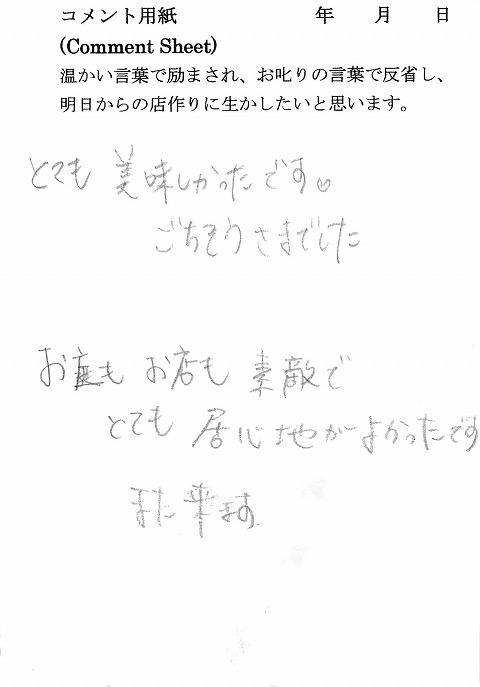 コメント用紙 年 月 日
(Comment Sheet)
温かい言葉で励まされ、お叱りの言葉で反省し、
明日からの店作りに生かしたいと思います。
とても 美味しかったです♡
ごちそうさまでした
お庭も お店も 素敵で
とても 居心地がよかったです
また来ます。